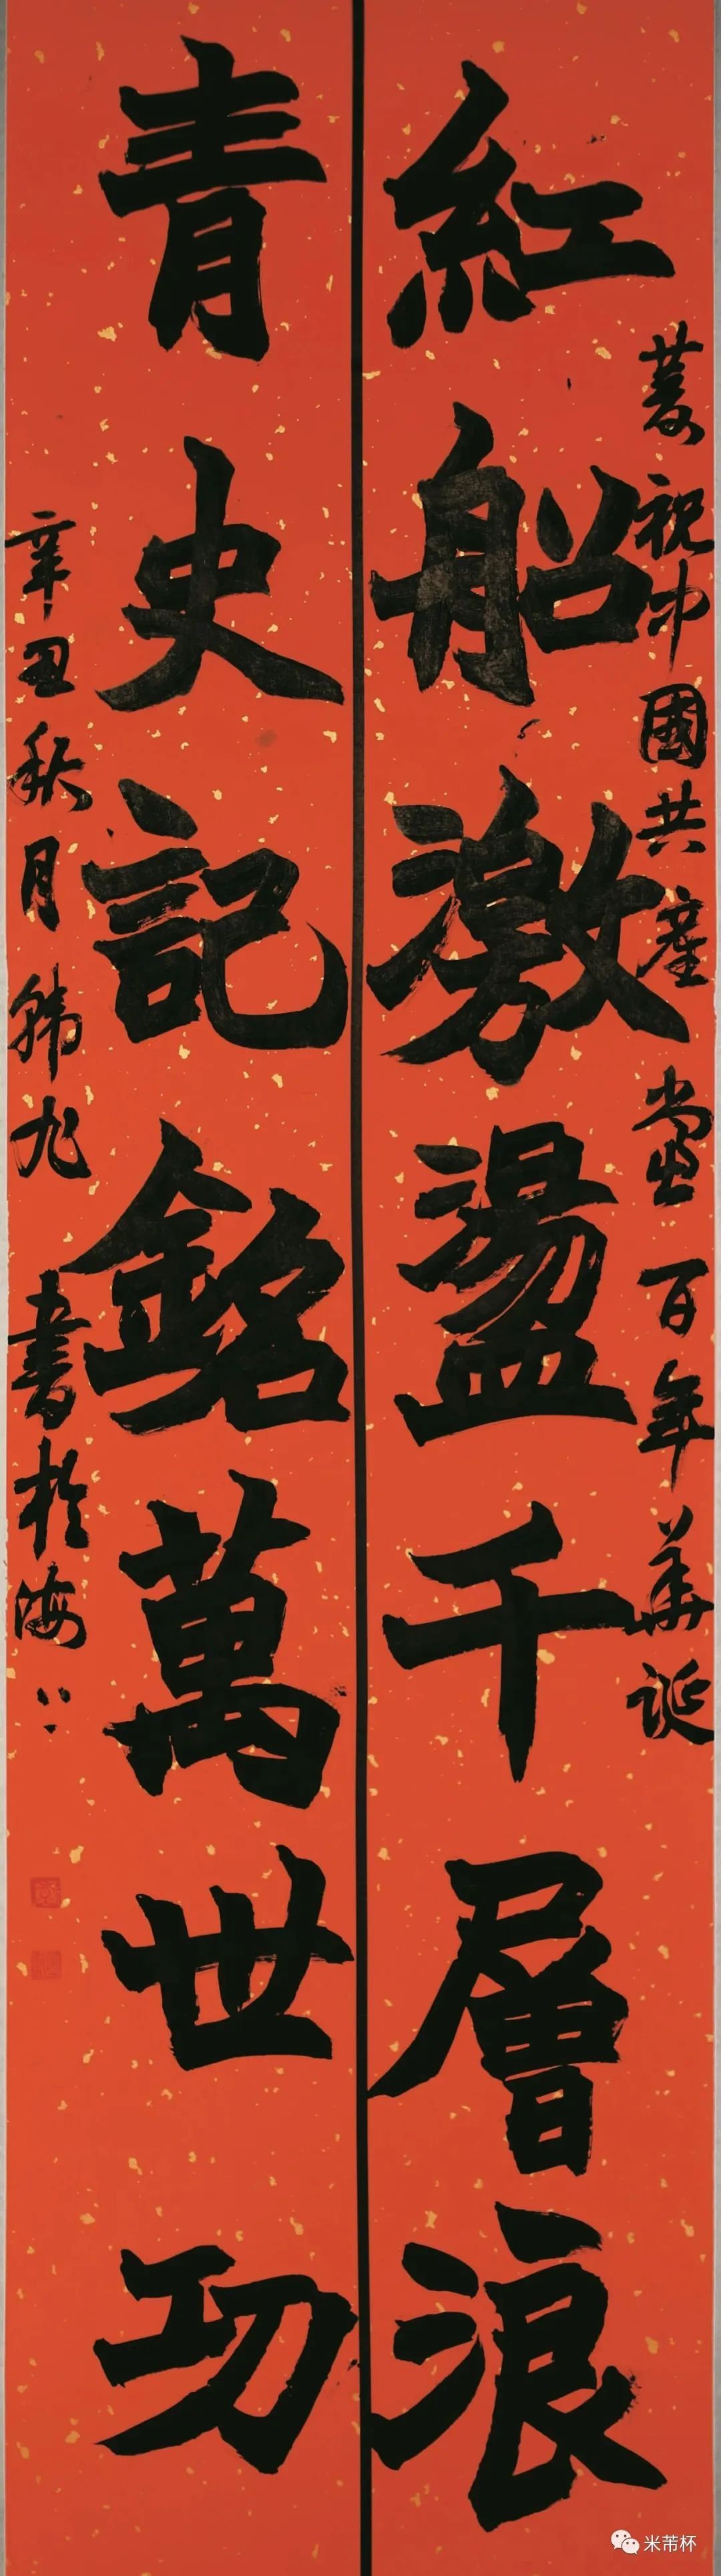 慶祝中國共產黨百年華誕
紅船激盪千層浪
青史記銘萬世功
辛丑秋月韓九書於海上
米芾杯